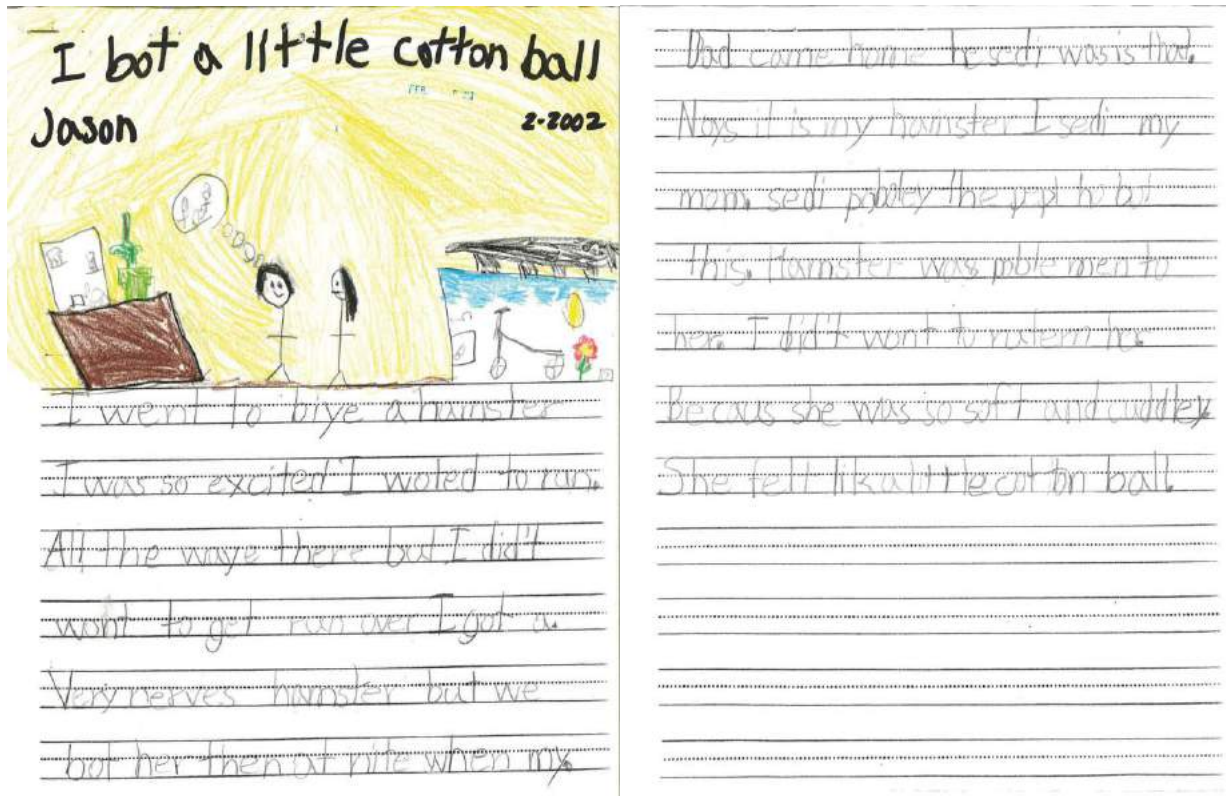 I bot a little cotton ball
Jason
2-2002
I went to biye a hamster
I was so excited I woted to run.
All the waye there but I did't
wont to get run over I got a.
Very nerves hamster but we
bot her then at nite when my.
Dad came home he sedi was is that.
Noys it is my hamster I sedi my
mom. sedi pobley the pepl ho bot
this. Hamster was moble men to
her. I did't wont to rutern her.
Becaus she was so soft and cuddley.
She felt lik a little cotton ball.